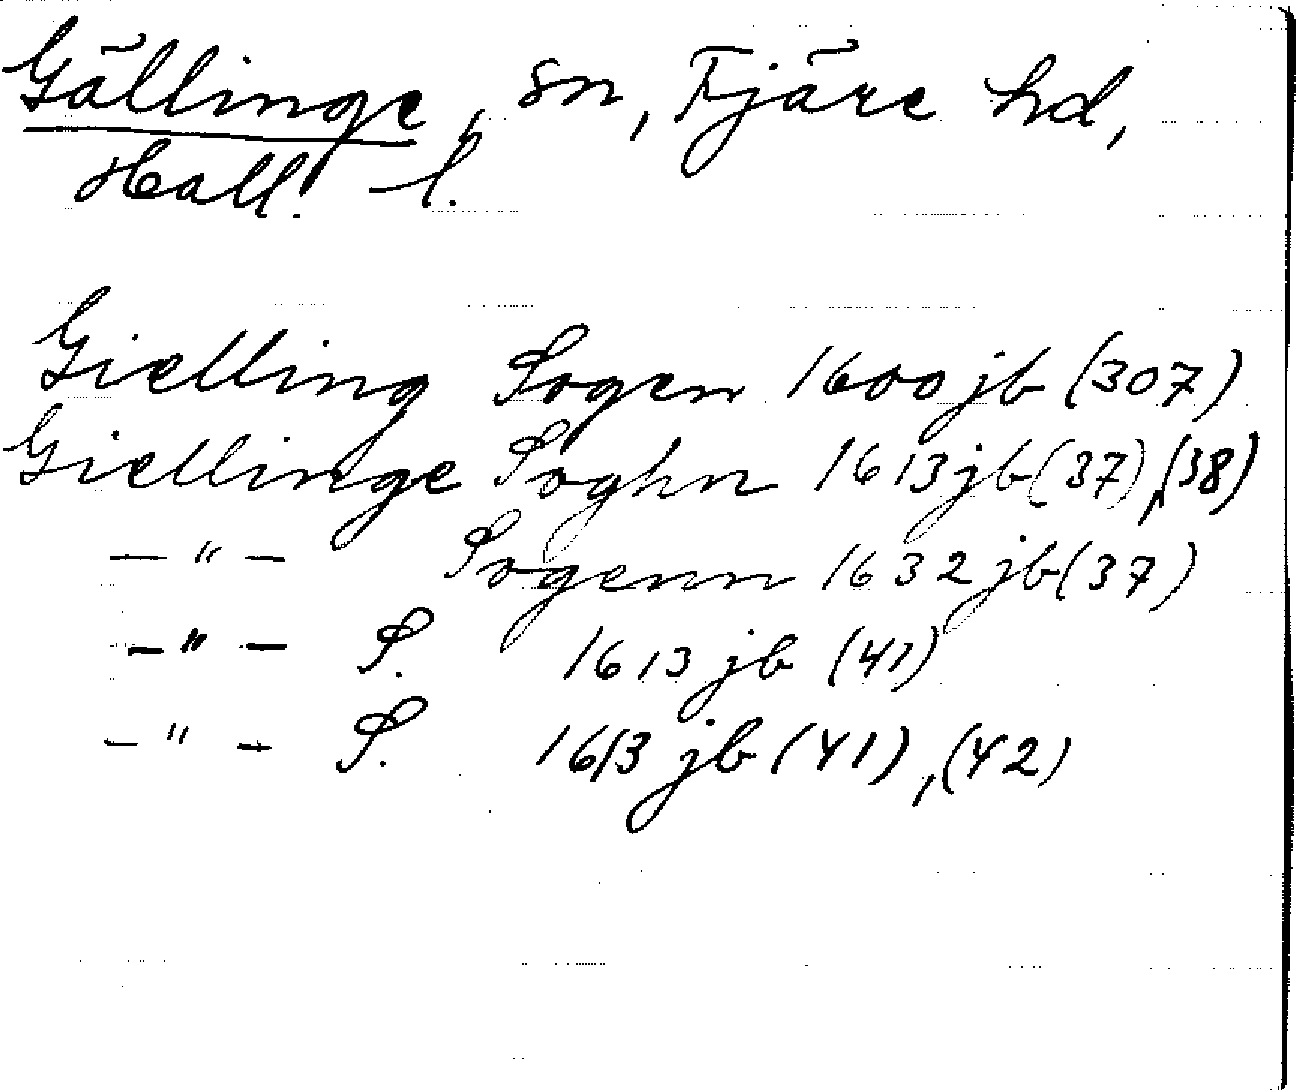 Gällinge, sn, Fjäre hd,
Hall. l.
Gielling Sogen 1600 jb (307)
Giellinge Soghn 1613 jb (37), (38)
—"— Sogenn 1632 jb (37)
—"— S. 1613 jb (41)
—"— S. 1613 jb (41), (42)